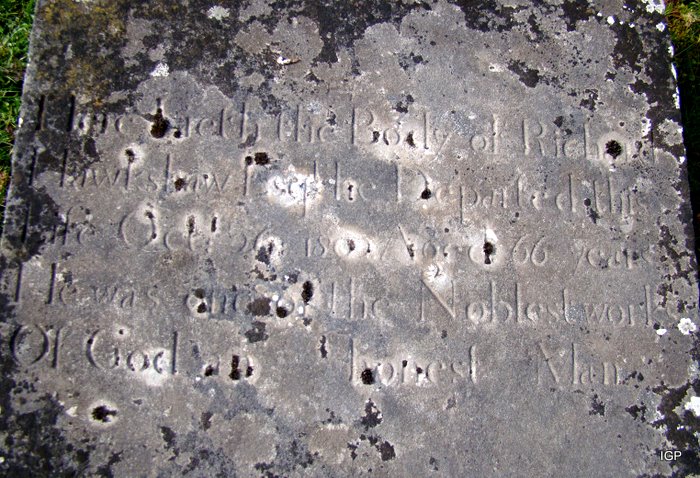 Here lieth the Body of Richard
Hawkshaw Esqr. he Departed this
life Oct. 26 180 Aged 66 years
He was one of the Noblest work
Of God an honest Man
IGP